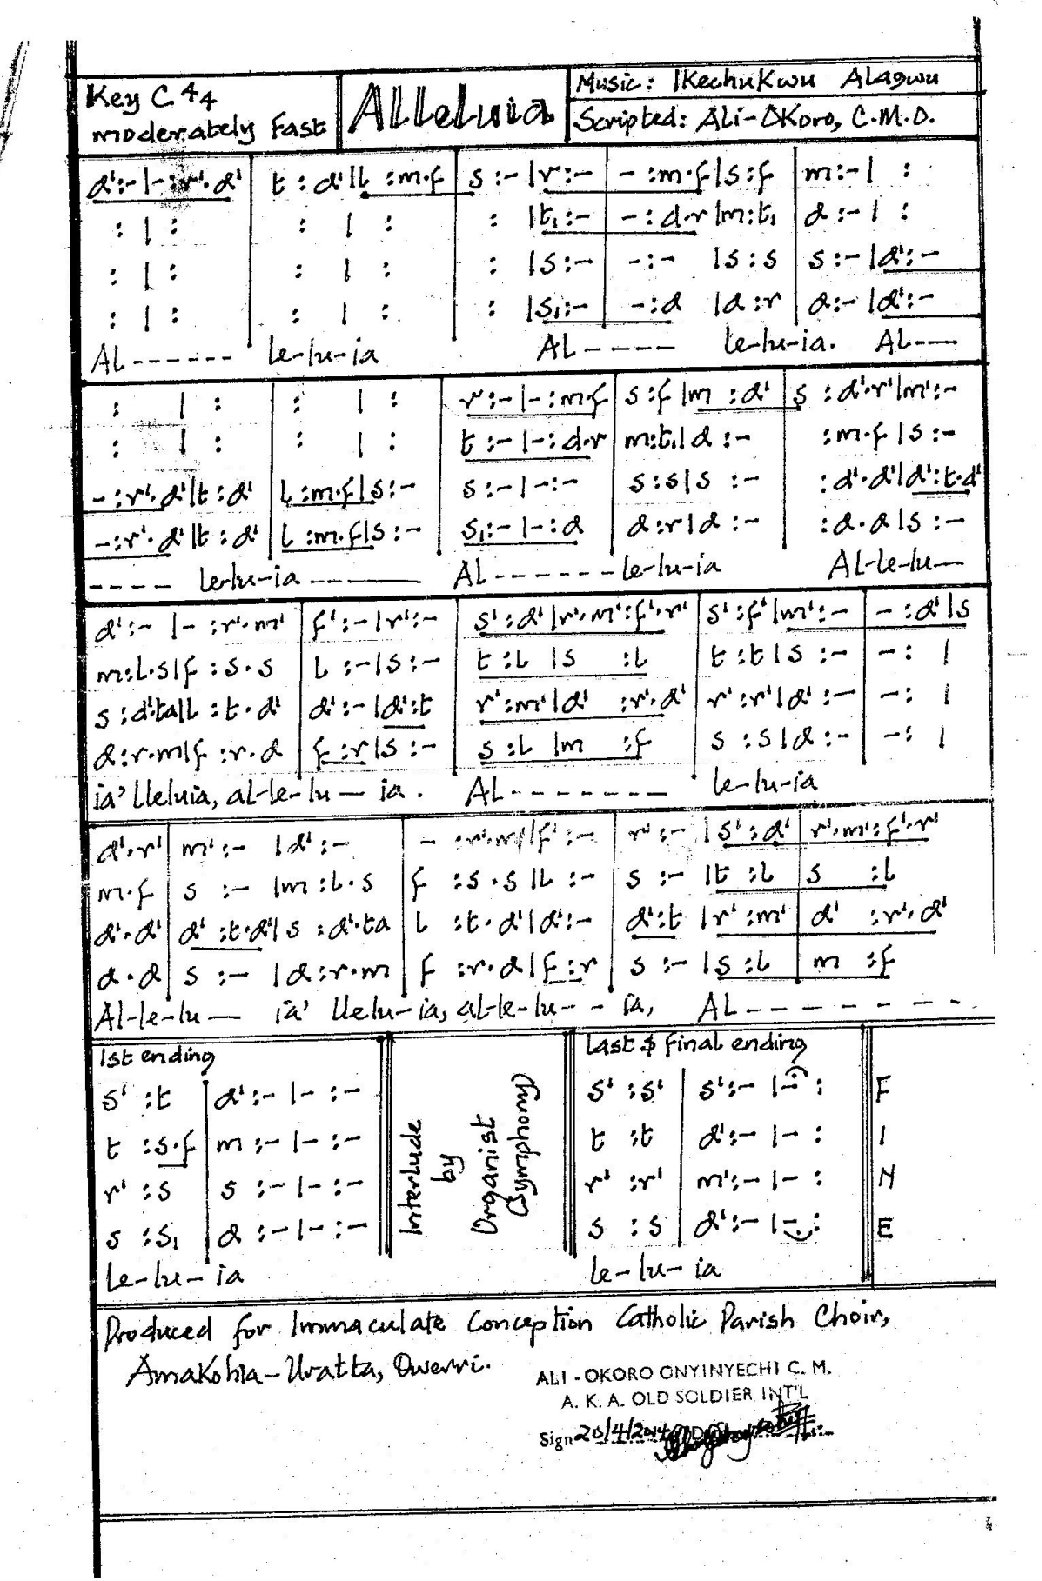 Key C 4/4
moderately Fast
ALLeLuia
Music: IKechuKwu Alagwu
Scripted: Ali-OKoro, C.M.D.
d':-|-:r'.d' | t:d'|l:m.f | s:-|r:- | -:m.f|s:f | m:-| :
:|: | :|: | :|t₁:- | -:d.r|m:t₁ | d:-| :
:|: | :|: | :|s:- | -:-|s:s | s:-|d':-
:|: | :|: | :|s₁:- | -:d|d:r | d:-|d':-
AL------ le-lu-ia AL----- le-lu-ia. AL---
:|: | :|: | r:-|-:m.f | s:f|m:d' | s:d'.r'|m':-
:|: | :|: | t:-|-:d.r | m:t₁|d:- | :m.f|s:-
-:r'.d'|t:d' | l:m.f|s:- | s:-|-:- | s:s|s:- | :d'.d'|d':t.d'
-:r'.d'|t:d' | l:m.f|s:- | s₁:-|-:d | d:r|d:- | :d.d|s:-
---- le-lu-ia ------ AL-------le-lu-ia AL-le-lu—
d':-|-:r'.m' | f':-|r':- | s':d'|r'.m':f'.r' | s':f'|m':- | -:d'|s
m:l.s|f:s.s | l:-|s:- | t:l|s:l | t:t|s:- | -:|
s:d'.ta|l:t.d' | d':-|d':t | r':m'|d':r'.d' | r':r'|d':- | -:|
d:r.m|f:r.d | f:r|s:- | s:l|m:f | s:s|d:- | -:|
ia' lleluia, al-le-lu—ia. AL------- le-lu-ia
d'.r' | m':-|d':- | -:r'.m'|f':- | r':-|s':d' | r'.m':f'.r'
m.f | s:-|m:l.s | f:s.s|l:- | s:-|t:l | s:l
d'.d' | d':t.d'|s:d'.ta | l:t.d'|d':- | d':t|r':m' | d':r'.d'
d.d | s:-|d:r.m | f:r.d|f:r | s:-|s:l | m:f
Al-le-lu— ia' llelu-ia, al-le-lu-- ia, AL---------
1st ending
s':t | d':-|-:-
t:s.f | m:-|-:-
r':s | s:-|-:-
s:s₁ | d:-|-:-
le-lu-ia
Interlude
by
Organist
(Symphony)
Last & final ending
s':s' | s':-|-: F
t:t | d':-|-: I
r':r' | m':-|-: N
s:s | d':-|-: E
le-lu-ia
Produced for Immaculate Conception Catholic Parish Choir,
AmaKohia-Uratta, Owerri.
ALI-OKORO ONYINYECHI C. M.
A. K. A. OLD SOLDIER INT'L
Sign 20/4/2014